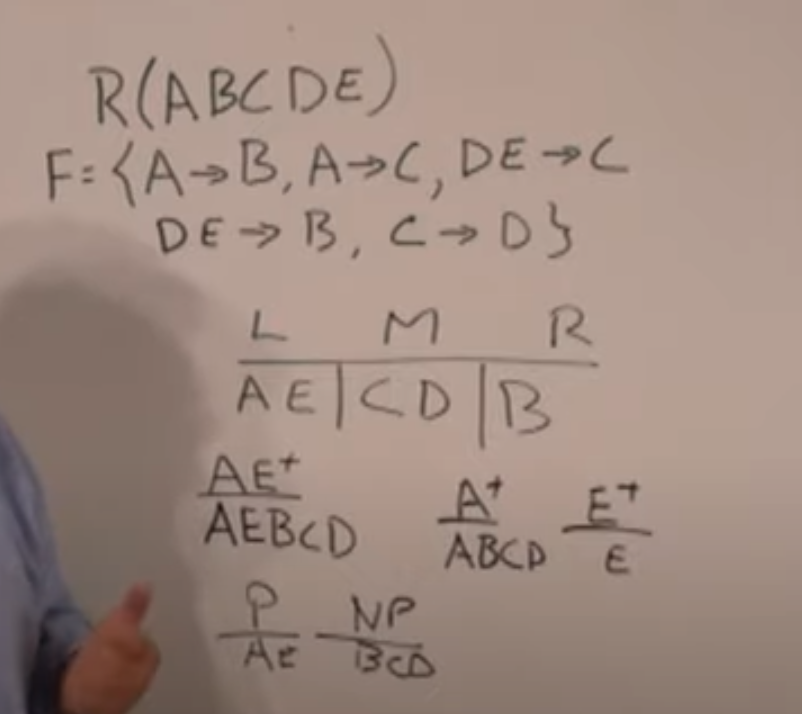 R(ABCDE)
F={A→B, A→C, DE→C
DE→B, C→D}
L M R
AE|CD|B
AE⁺ A⁺ E⁺
AEBCD ABCD E
P NP
AE BCD